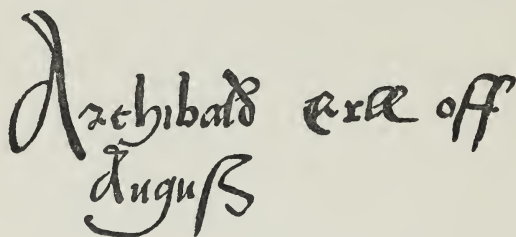 Archibald erll off
Anguß